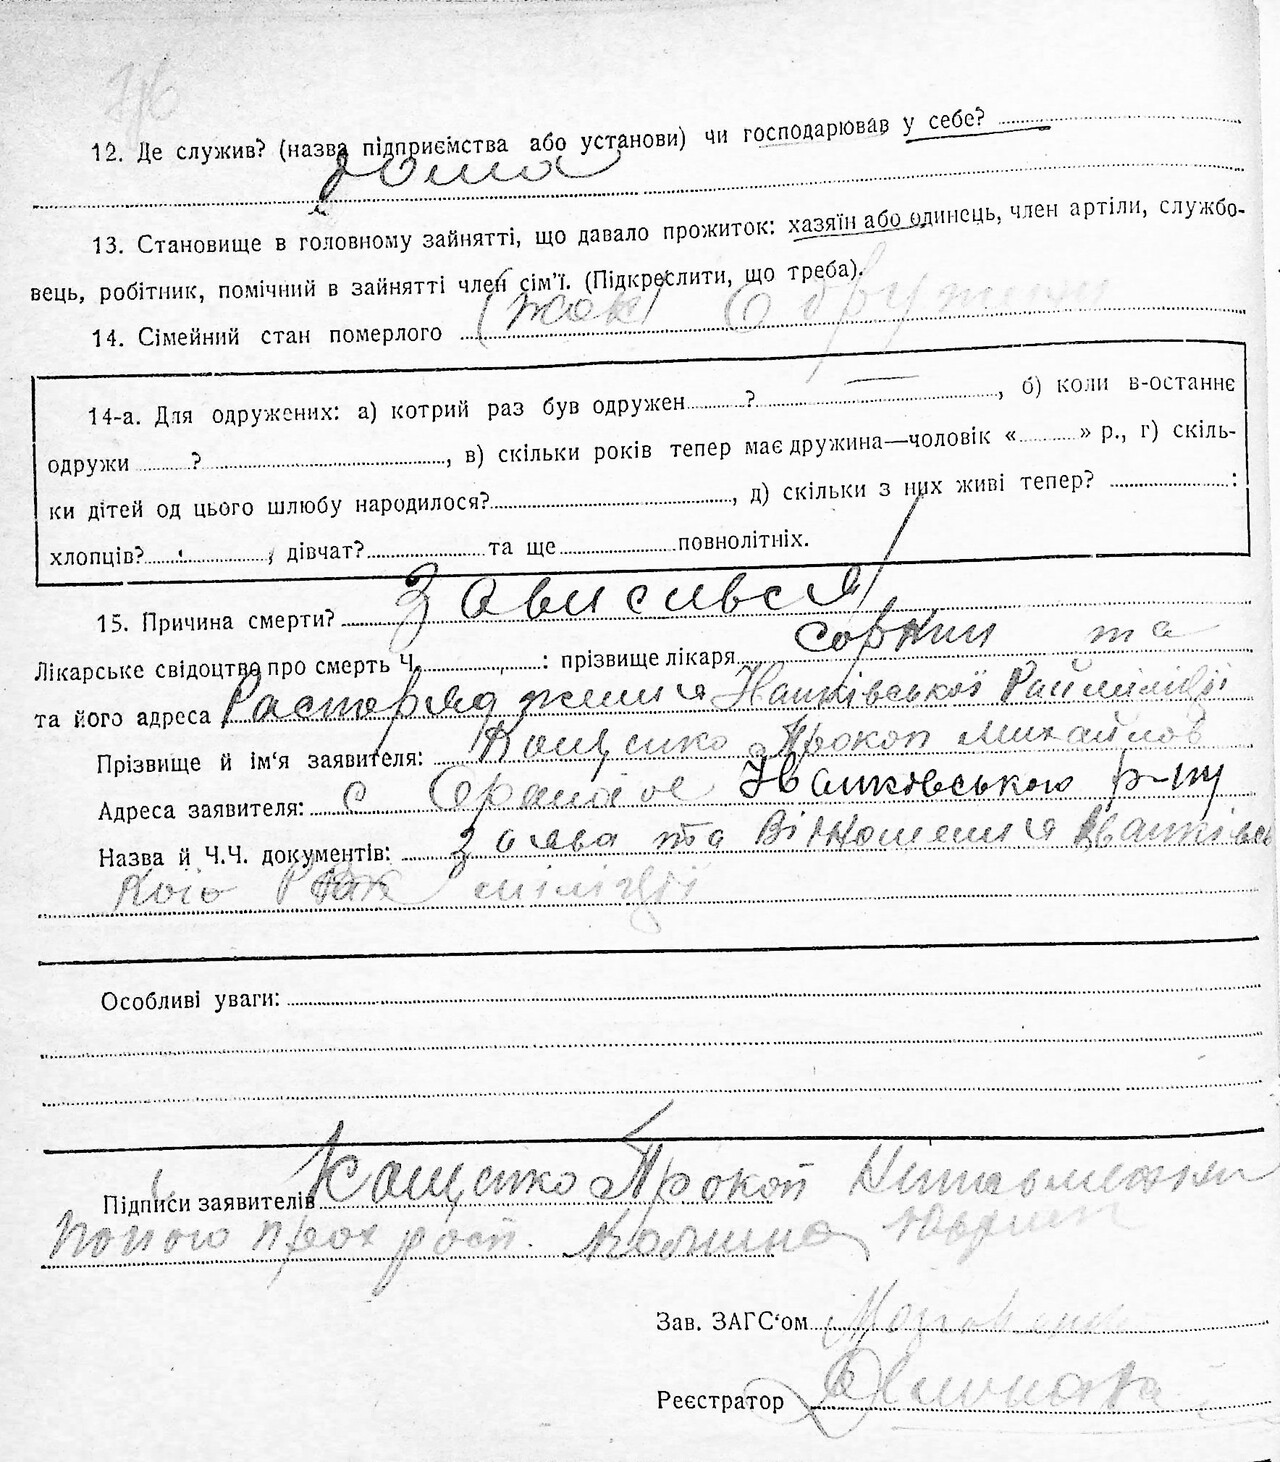 12. Де служив? (назва підприємства або установи) чи господарював у себе?
дома
13. Становище в головному зайнятті, що давало прожиток: хазяїн або одинець, член артіли, службо-
вець, робітник, помічний в зайнятті член сім'ї. (Підкреслити, що треба).
14. Сімейний стан померлого
14-а. Для одружених: а) котрий раз був одружен ? , б) коли в-останнє
одружи ? , в) скільки років тепер має дружина—чоловік « » р., г) скіль-
ки дітей од цього шлюбу народилося? , д) скільки з них живі тепер? :
хлопців? , дівчат? та ще повнолітніх.
15. Причина смерти? Зависився
Лікарське свідоцтво про смерть Ч. : прізвище лікаря та
та його адреса Распоряджения Іванківської Райміліції
Прізвище й ім'я заявителя: Кощенко Прокоп Михайлов
Адреса заявителя: с Іванківського р-ну
Назва й Ч.Ч. документів: заява та Відношения Іванківсь
кого міліції
Особливі уваги:
Підписи заявителів Кощенко Прокоп
Зав. ЗАГС'ом
Реєстратор